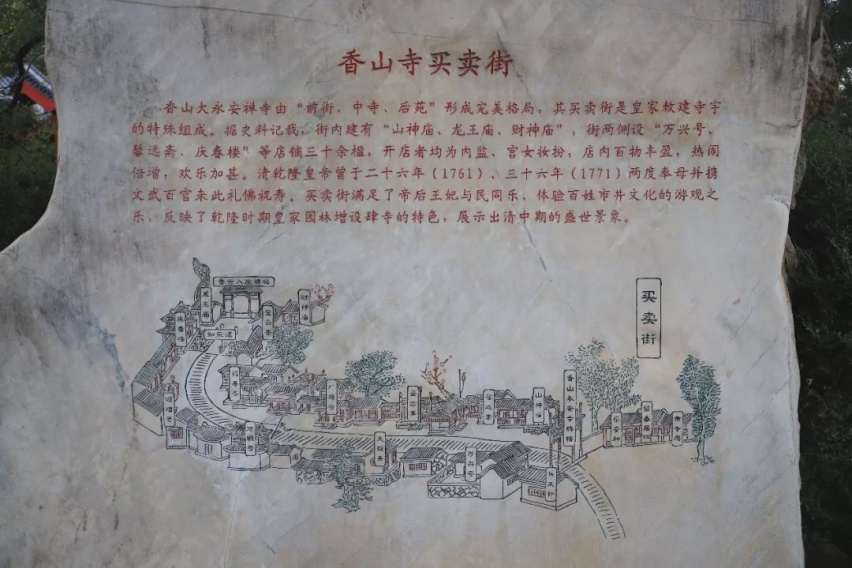 香山寺买卖街
香山大永安禅寺由“前街，中寺、后苑”形成完美格局，其买卖街是皇家敕建寺宇
的特殊组成。据史料记载，街内建有“山神庙、龙王庙、财神庙”，街两侧设“万兴号、
馨远斋、庆春楼”等店铺三十余楹，开店者均为内监、宫女妆扮，店内百物丰盈，热闹
倍增，欢乐加甚。清乾隆皇帝曾于二十六年（1761）、三十六年（1771）两度奉母并携
文武百官来此礼佛祝寿。买卖街满足了帝后王妃与民同乐、体验百姓市井文化的游观之
乐，反映了乾隆时期皇家园林增设肆寺的特色，展示出清中期的盛世景象。
买卖街
龙王庙
财神庙
知乐濠
万兴号
山神庙